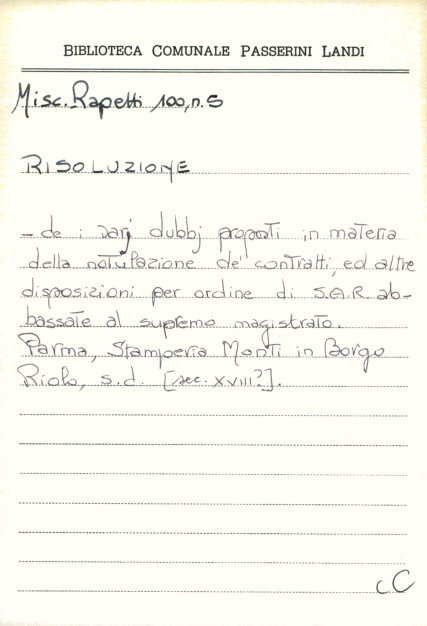 BIBLIOTECA COMUNALE PASSERINI LANDI
Misc. Rapetti 100, n. 5
RISOLUZIONE
- de i varj dubbj proposti in materia
della notulazione de' contratti, ed altre
disposizioni per ordine di S.A.R. ab-
bassate al supremo magistrato.
Parma, Stamperia Monti in Borgo
Riolo, s.d. [sec. XVIII?].
CC